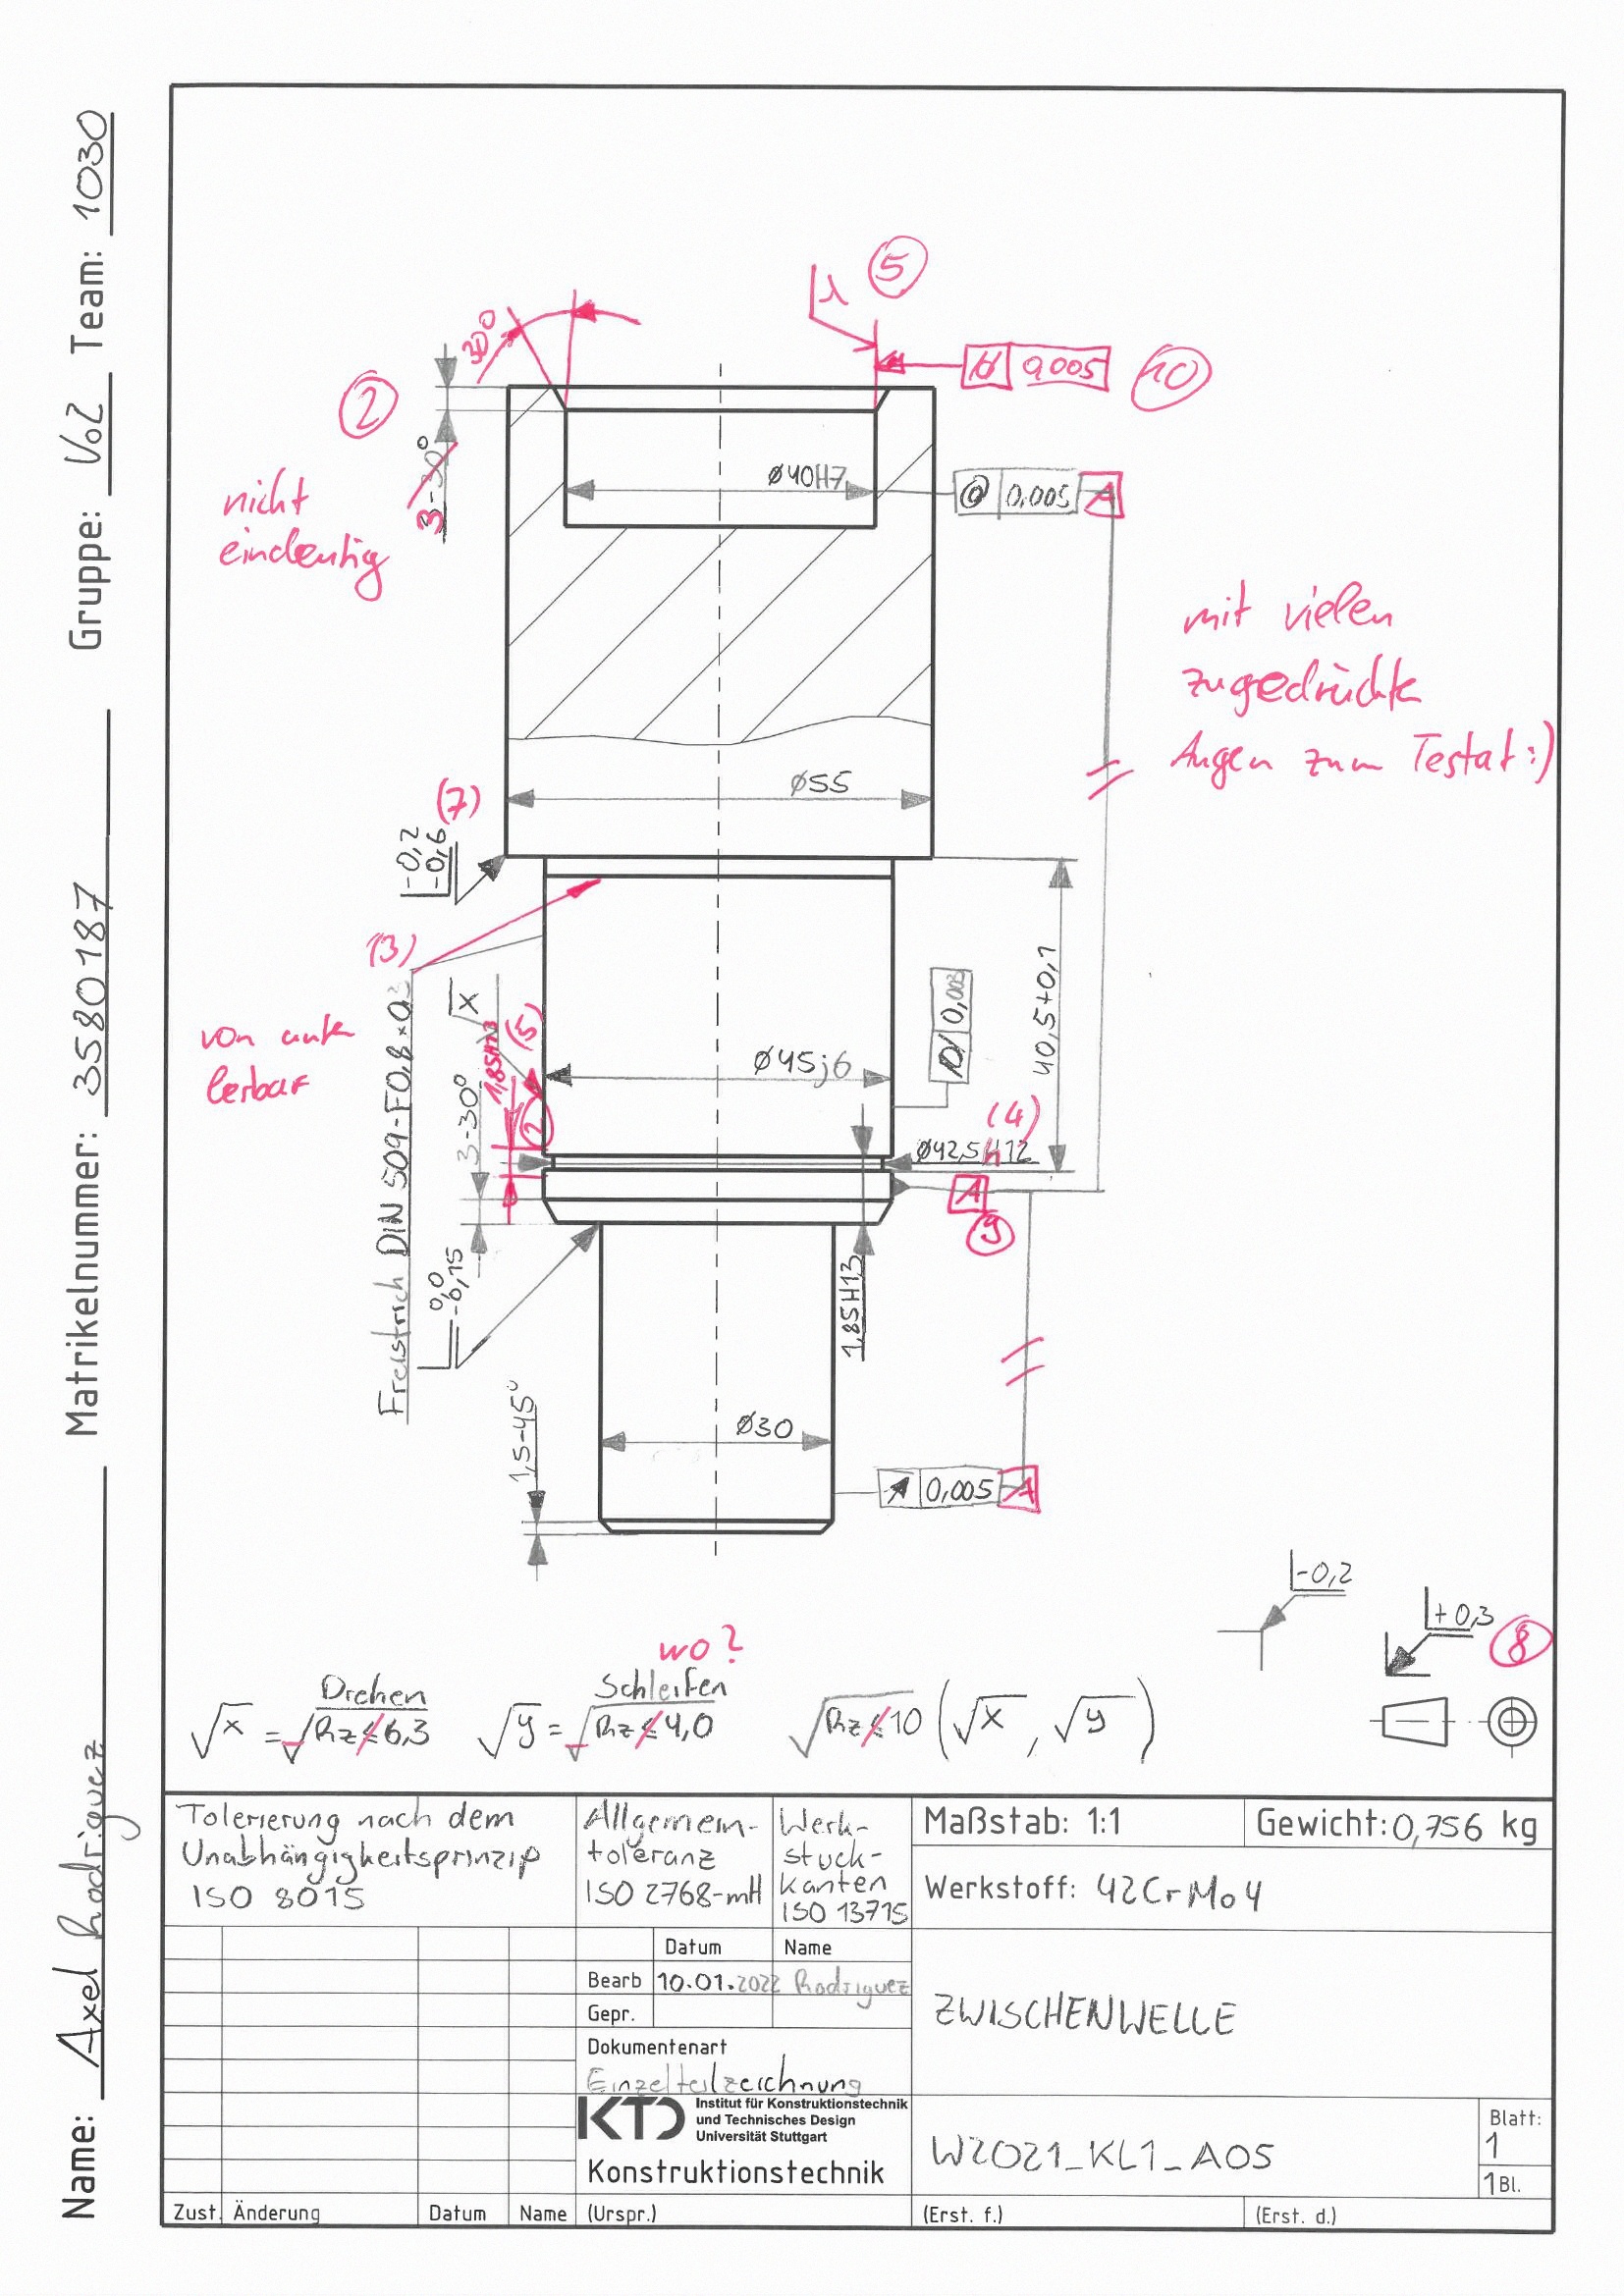 Name: Axel Rodriguez Matrikelnummer: 3580187 Gruppe: Vo2 Team: 1030
5
30°
0,005
10
2
3-30°
⌀40H7
0,005 A
nicht
eindeutig
mit vielen
zugedrückte
Augen zum Testat :)
⌀55
(7)
-0,2
-0,6
(3)
von unten
lesbar
Freistrich DIN 509-F0,8×0,3
x
(5)
1,85H13
2
3-30°
⌀45j6
0,003
40,5+0,1
(4)
⌀42,5h12
A
9
0,0
-0,15
1,85H13
1,5-45°
⌀30
0,005 A
-0,2
+0,3
8
wo?
Drehen
√x = √Rz≤6,3
Schleifen
√y = √Rz≤4,0
√Rz≤10 (√x, √y)
Tolerierung nach dem
Unabhängigkeitsprinzip
ISO 8015
Allgemein-
toleranz
ISO 2768-mH
Werk-
stuck-
kanten
ISO 13715
Maßstab: 1:1
Gewicht: 0,756 kg
Werkstoff: 42CrMo4
Datum Name
Bearb 10.01.2022 Rodriguez
Gepr.
Dokumentenart
Einzelteilzeichnung
ZWISCHENWELLE
KTD
Institut für Konstruktionstechnik
und Technisches Design
Universität Stuttgart
Konstruktionstechnik
W2021_KL1_A05
Blatt:
1
1 Bl.
Zust. Änderung Datum Name (Urspr.) (Erst. f.) (Erst. d.)